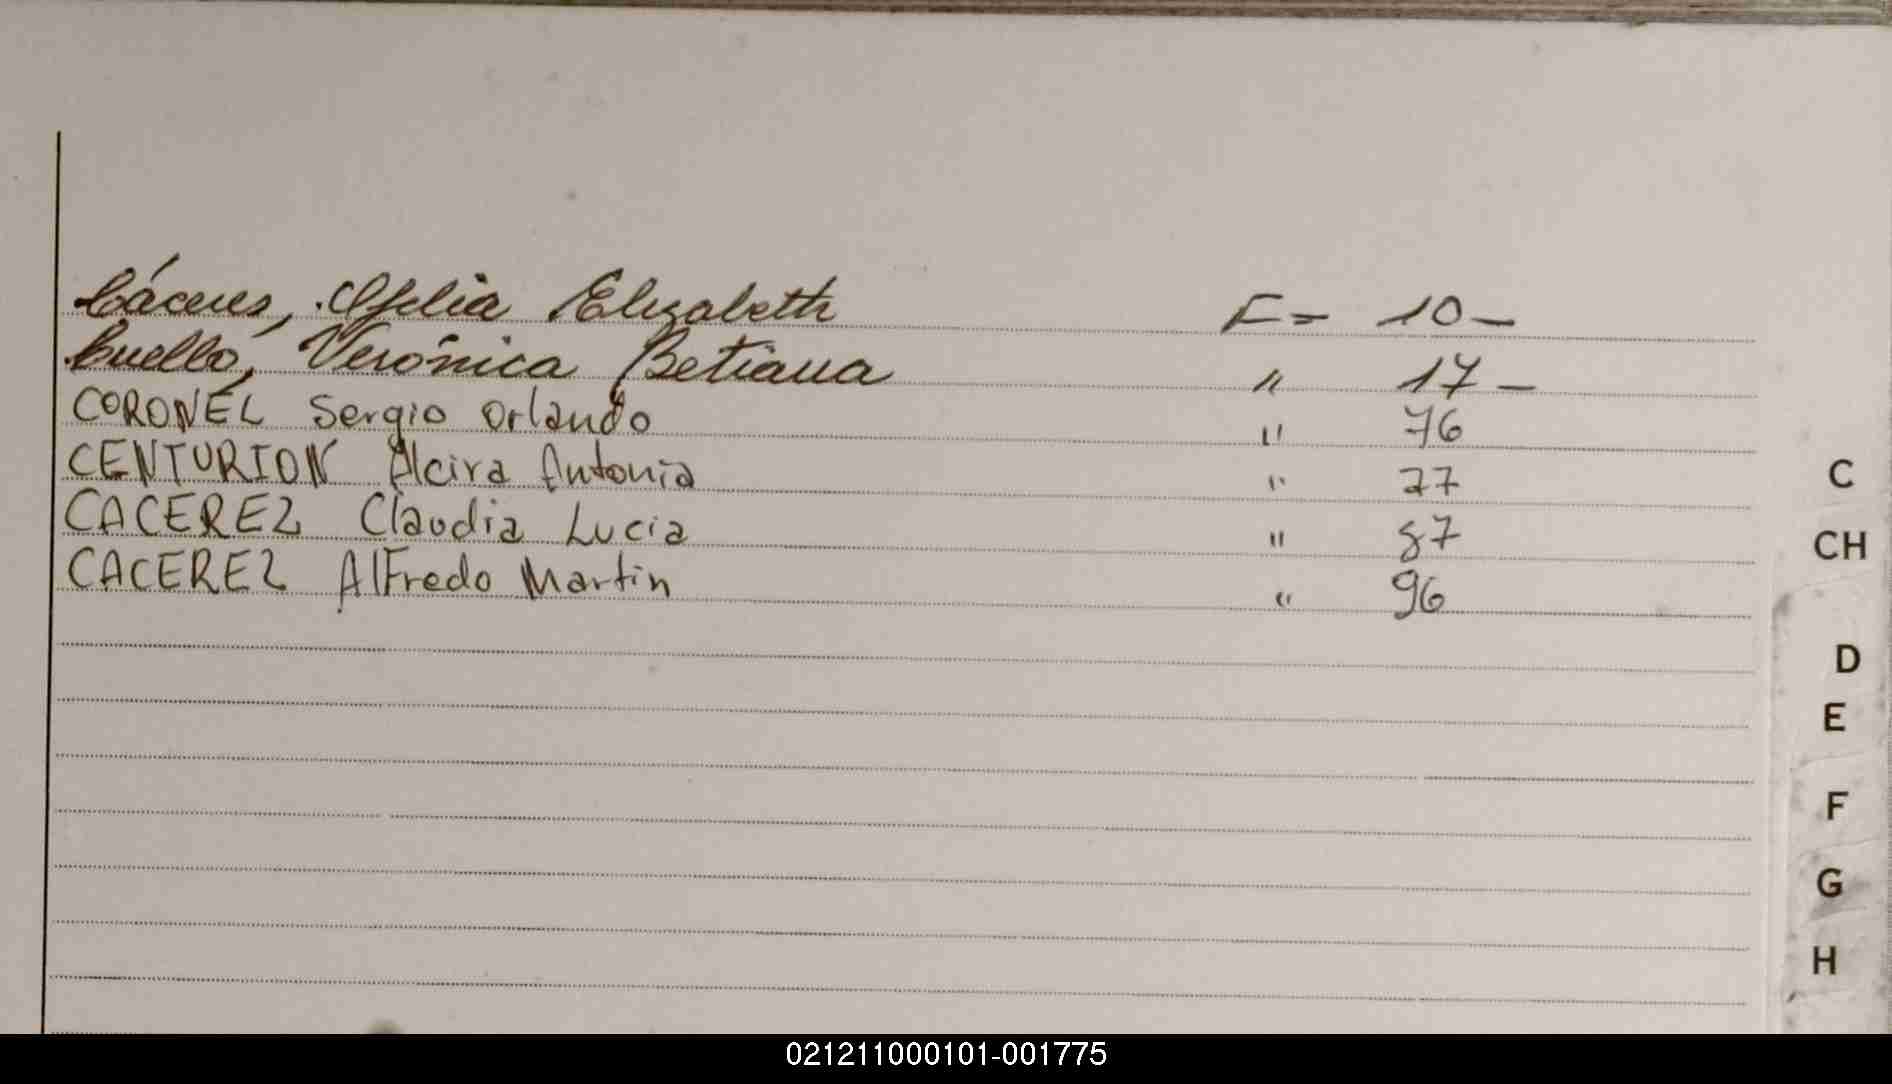 Cáceres, Ofelia Elizabeth F= 10-
Cuello, Verónica Betiana " 17-
CORONEL Sergio Orlando " 76
CENTURION Alcira Antonia " 77
CACEREZ Claudia Lucia " 87
CACEREZ AlFredo Martin " 96
C
CH
D
E
F
G
H
021211000101-001775